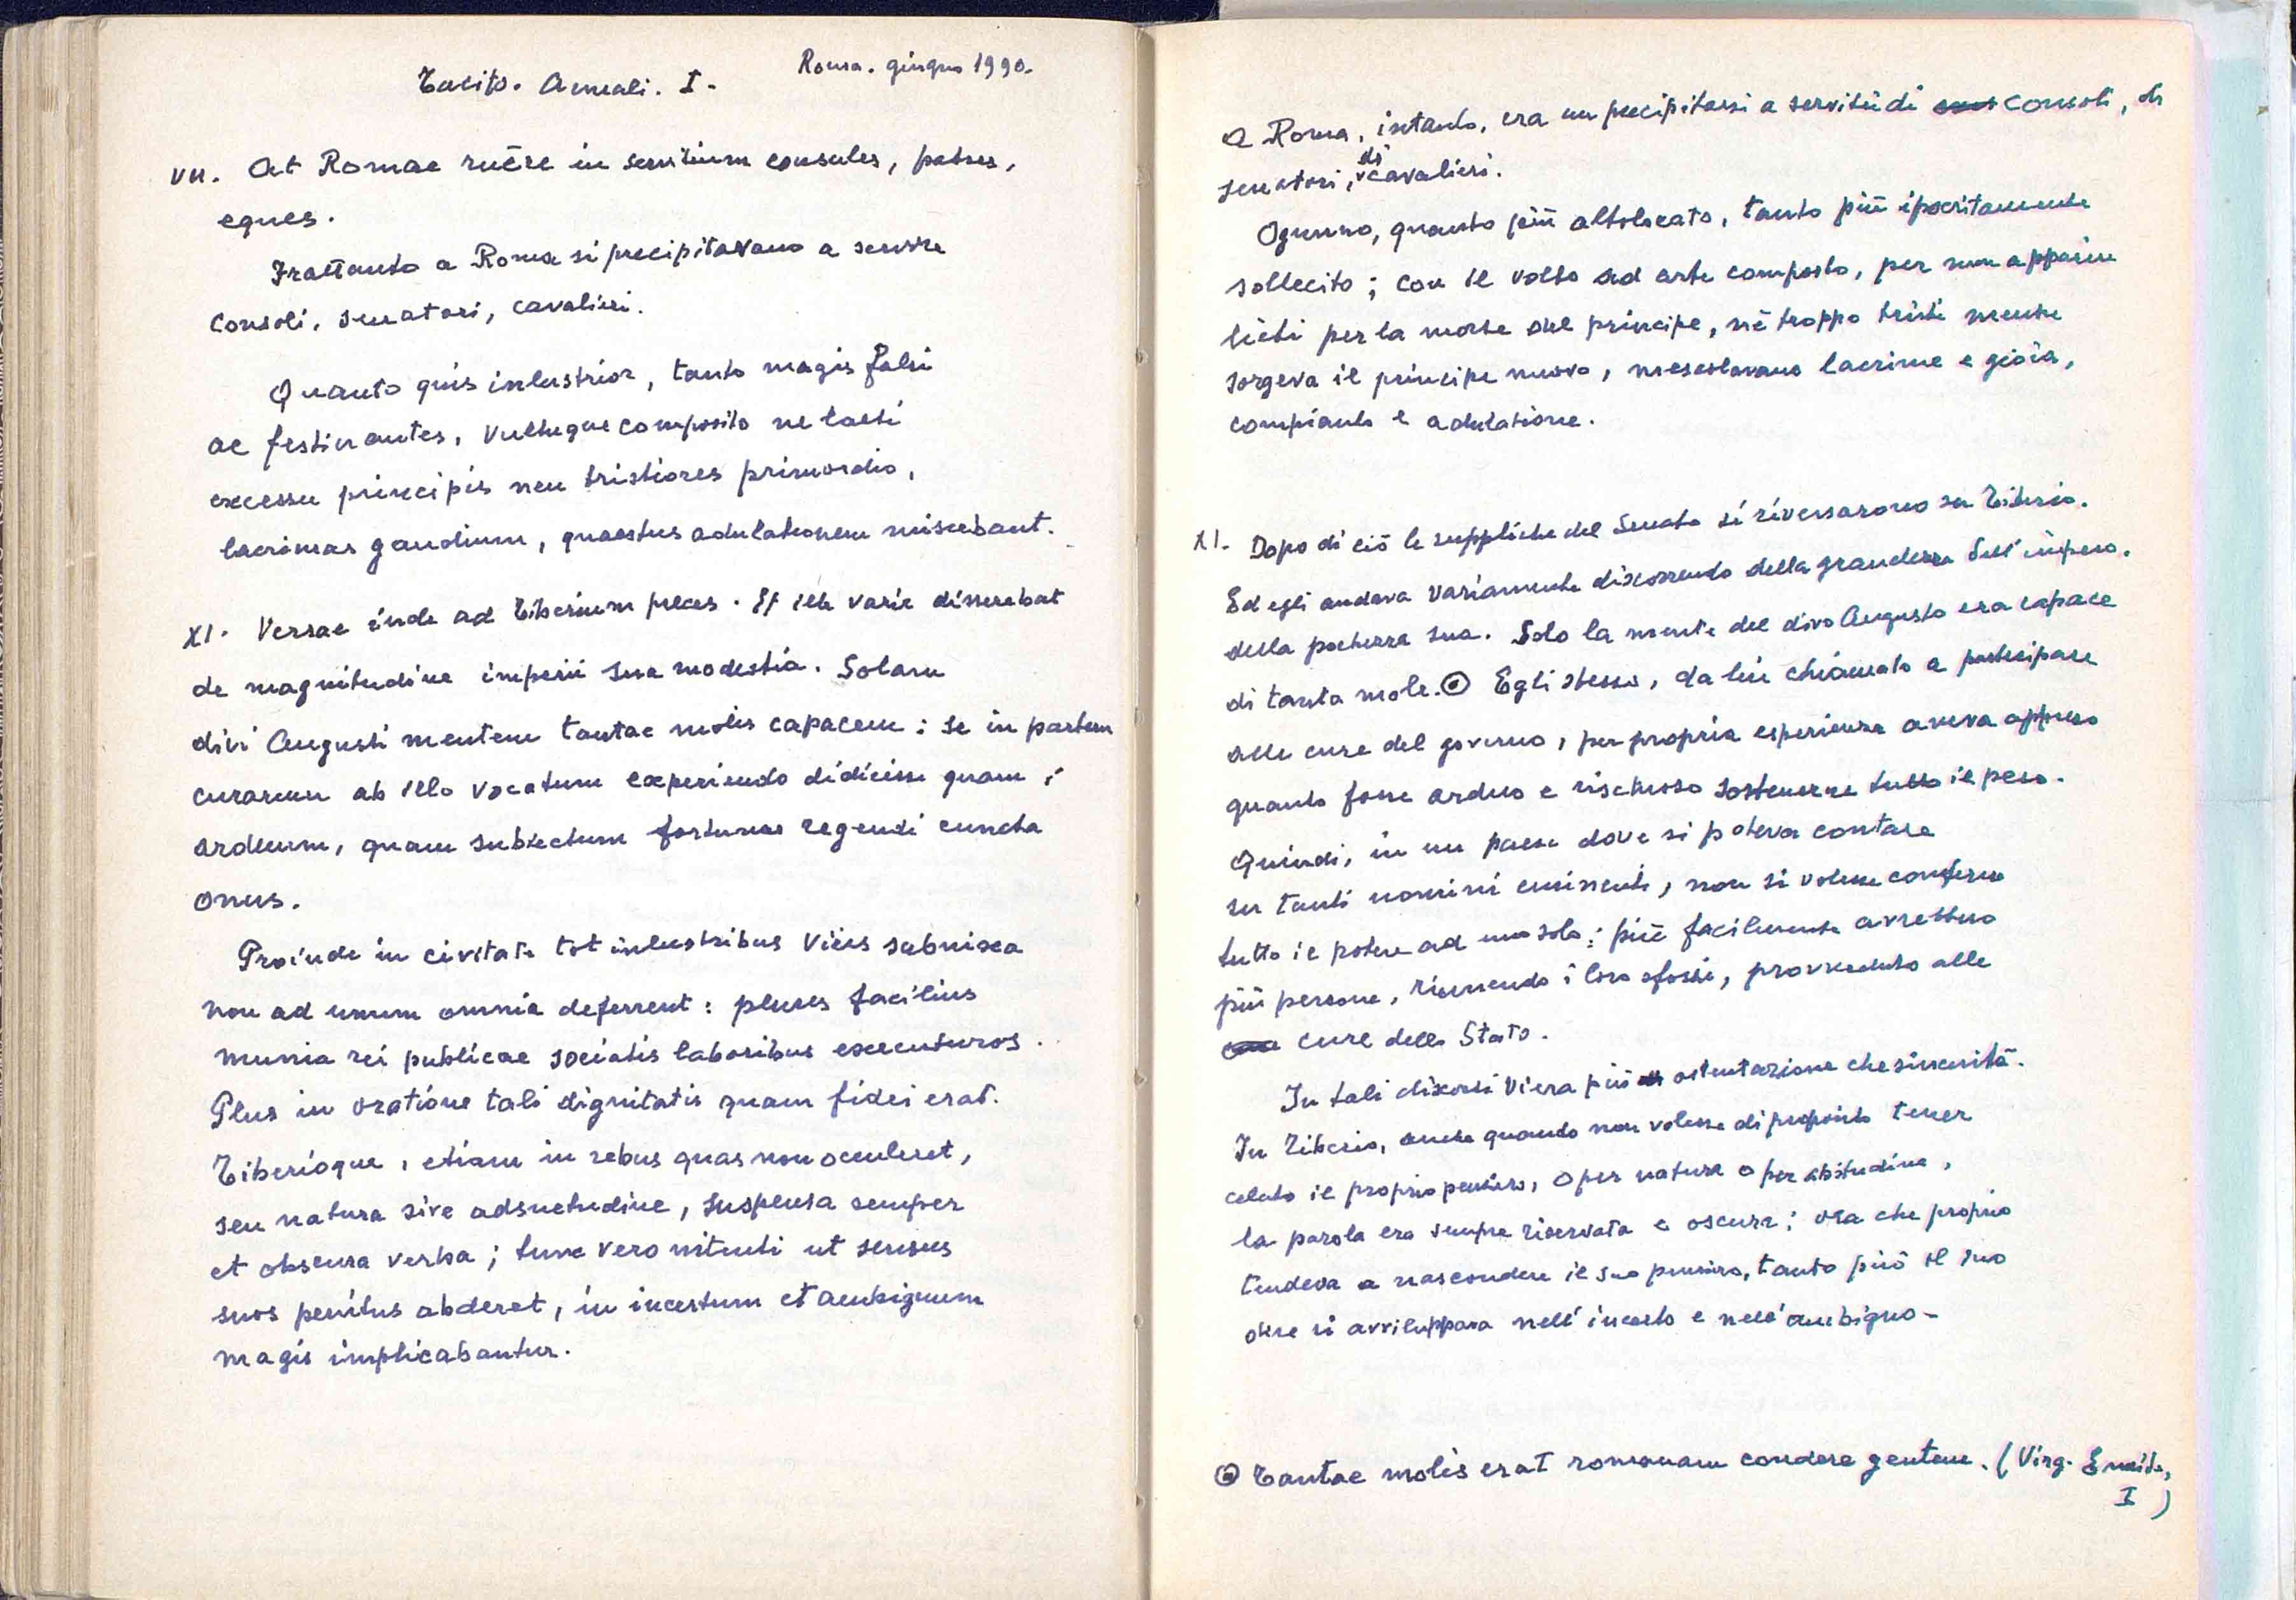 Tacito. Annali. I.
Roma. giugno 1990.
VII. At Romae ruere in servitium consules, patres,
eques.
Frattanto a Roma si precipitavano a servire
consoli, senatori, cavalieri.
Quanto quis inlustrior, tanto magis falsi
ac festinantes, vultuque composito ne laeti
excessu principis neu tristiores primordio,
lacrimas gaudium, quaestus adulationem miscebant.
XI. Versae inde ad Tiberium preces. Et ille varie disserebat
de magnitudine imperii sua modestia. Solam
divi Augusti mentem tantae molis capacem: se in partem
curarum ab illo vocatum experiendo didicisse quam
arduum, quam subiectum fortunae regendi cuncta
onus.
Proinde in civitate tot inlustribus viris subnixa
non ad unum omnia deferrent: plures facilius
munia rei publicae sociatis laboribus executuros.
Plus in oratione tali dignitatis quam fidei erat.
Tiberioque, etiam in rebus quas non occuleret,
seu natura sive adsuetudine, suspensa semper
et obscura verba; tunc vero nitenti ut sensus
suos penitus abderet, in incertum et ambiguum
magis implicabantur.
A Roma, intanto, era un precipitarsi a servitù di consoli, di
senatori, di cavalieri.
Ognuno, quanto più altolocato, tanto più ipocritamente
sollecito; con il volto ad arte composto, per non apparire
lieti per la morte del principe, nè troppo tristi mentre
sorgeva il principe nuovo, mescolavano lacrime e gioia,
compianto e adulazione.
XI. Dopo di ciò le suppliche del Senato si riversarono su Tiberio.
Ed egli andava variamente discorrendo della grandezza dell'impero.
della pochezza sua. Solo la mente del divo Augusto era capace
di tanta mole. ⊙ Egli stesso, da lui chiamato a partecipare
alle cure del governo, per propria esperienza aveva appreso
quanto fosse arduo e rischioso sostenerne tutto il peso.
Quindi, in un paese dove si poteva contare
su tanti uomini eminenti, non si volesse conferire
tutto il potere ad uno solo: più facilmente avrebbero
più persone, riunendo i loro sforzi, provveduto alle
cure dello Stato.
In tali discorsi vi era più ostentazione che sincerità.
In Tiberio, anche quando non volesse di proposito tener
celato il proprio pensiero, o per natura o per abitudine,
la parola era sempre riservata e oscura; ora che proprio
tendeva a nascondere il suo pensiero, tanto più il suo
dire si avviluppava nell'incerto e nell'ambiguo-
⊙ Tantae molis erat romanam condere gentem. (Virg. Eneide,
I)